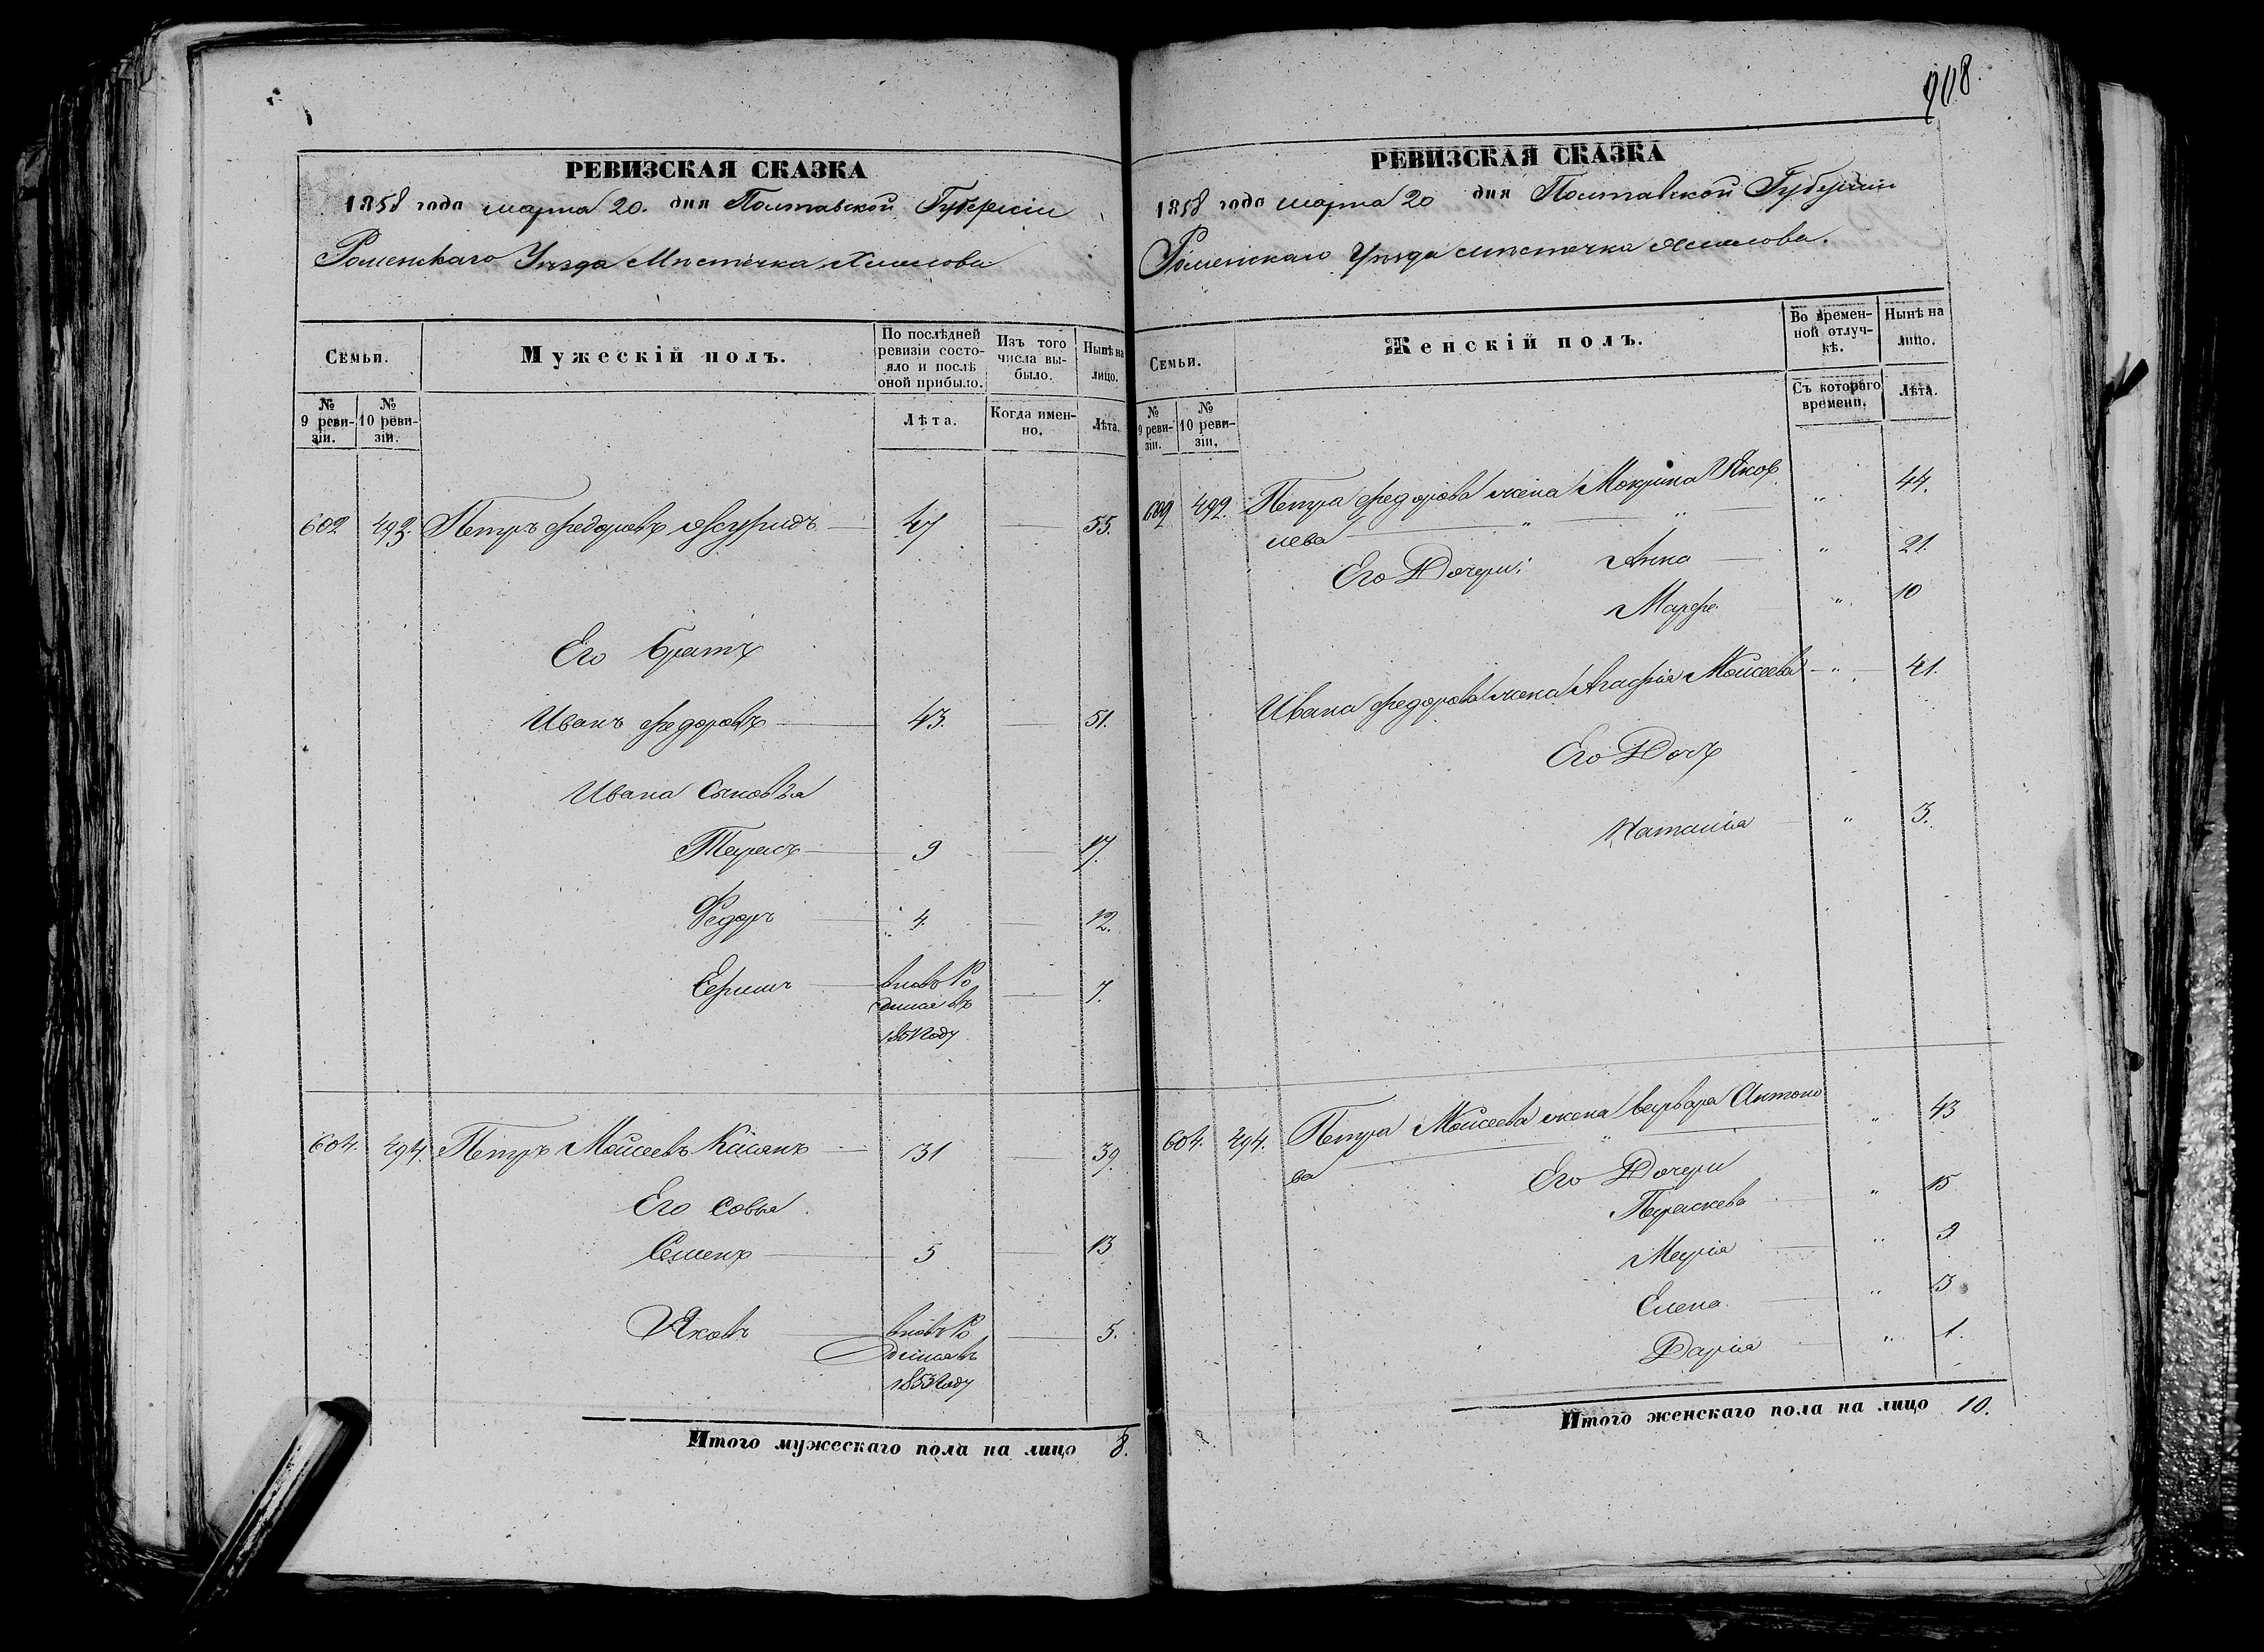 908.
РЕВИЗСКАЯ СКАЗКА
1858 года марта 20. дня Полтавской Губерніи
Роменскаго Уѣзда Мѣстечка Хмелова
Семьи.
Мужескій полъ.
По послѣдней ревизіи состояло и послѣ оной прибыло.
Изъ того числа выбыло.
Нынѣ на лицо.
№ 9 ревизіи.
№ 10 ревизіи.
Лѣта.
Когда именно.
Лѣта.
602 493. Петръ Федоровъ 47 55.
Его братъ
Иванъ Федоровъ 43. 51.
Ивана сыновья
Тарасъ 9 17.
Федоръ 4. 12.
вновь Ро 7.
дился въ
1851 году
604. 494. Петръ Моисеевъ 31 39.
Его
Семенъ 5 13
Яковъ вновь Ро 5.
дился въ
1853 году
Итого мужескаго пола на лицо 8.
РЕВИЗСКАЯ СКАЗКА
1858 года марта 20 дня Полтавской Губерніи
Роменскаго Уѣзда мѣстечка Хмелова.
Семьи.
Женскій полъ.
Во временной отлучкѣ.
Нынѣ на лицо.
№ 9 ревизіи.
№ 10 ревизіи.
Съ котораго времени.
Лѣта.
492. Петра Федорова жена Мокрина Яков „ 44.
лева „ „
Его Дочери: Анна „ 21.
Марфа „ 10
Ивана Федорова жена Агафія Моисеева „ 41.
Его Дочь
Наталія „ 3.
604. 494. Петра Моисеева жена Варвара Антоно „ 43
ва „ Его Дочери
Параскева „ 15
Марія „ 9
Елена „ 3
Дарія „ 1.
Итого женскаго пола на лицо 10.